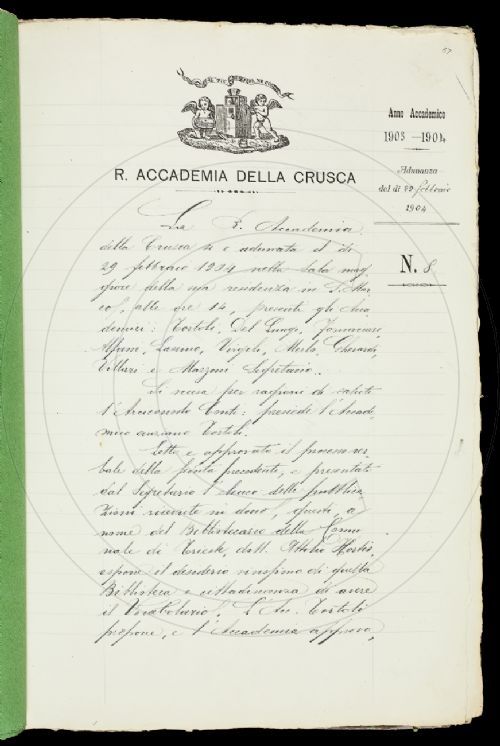 57
IL PIÙ BEL FIOR NE COGLIE
R. ACCADEMIA DELLA CRUSCA
Anno Accademico
1903-1904
Adunanza
del dì 29 febbraio
1904
N. 8
La R. Accademia
della Crusca si è adunata il dì
29 febbraio 1904 nella sala mag-
giore della sua residenza in S. Mar-
co, alle ore 14, presenti gli Acca-
demici: Tortoli, Del Lungo,
Alfani, Lasinio, Vigo, Merlo, Gherardi,
Villari e Mazzoni Segretario.
Si scusa per ragioni di salute
l'Arciconsolo Conti: presiede l'Acca-
demico anziano Tortoli.
Letto e approvato il processo ver-
bale della seduta precedente, e presentato
dal Segretario l'elenco delle pubblica-
zioni ricevute in dono, questi, a
nome del Bibliotecario della Comu-
nale di Trieste, dott. Attilio Hortis,
espone il desiderio vivissimo di quella
Biblioteca e cittadinanza di avere
il Vocabolario. L'Acc. Tortoli
propone, e l'Accademia approva,